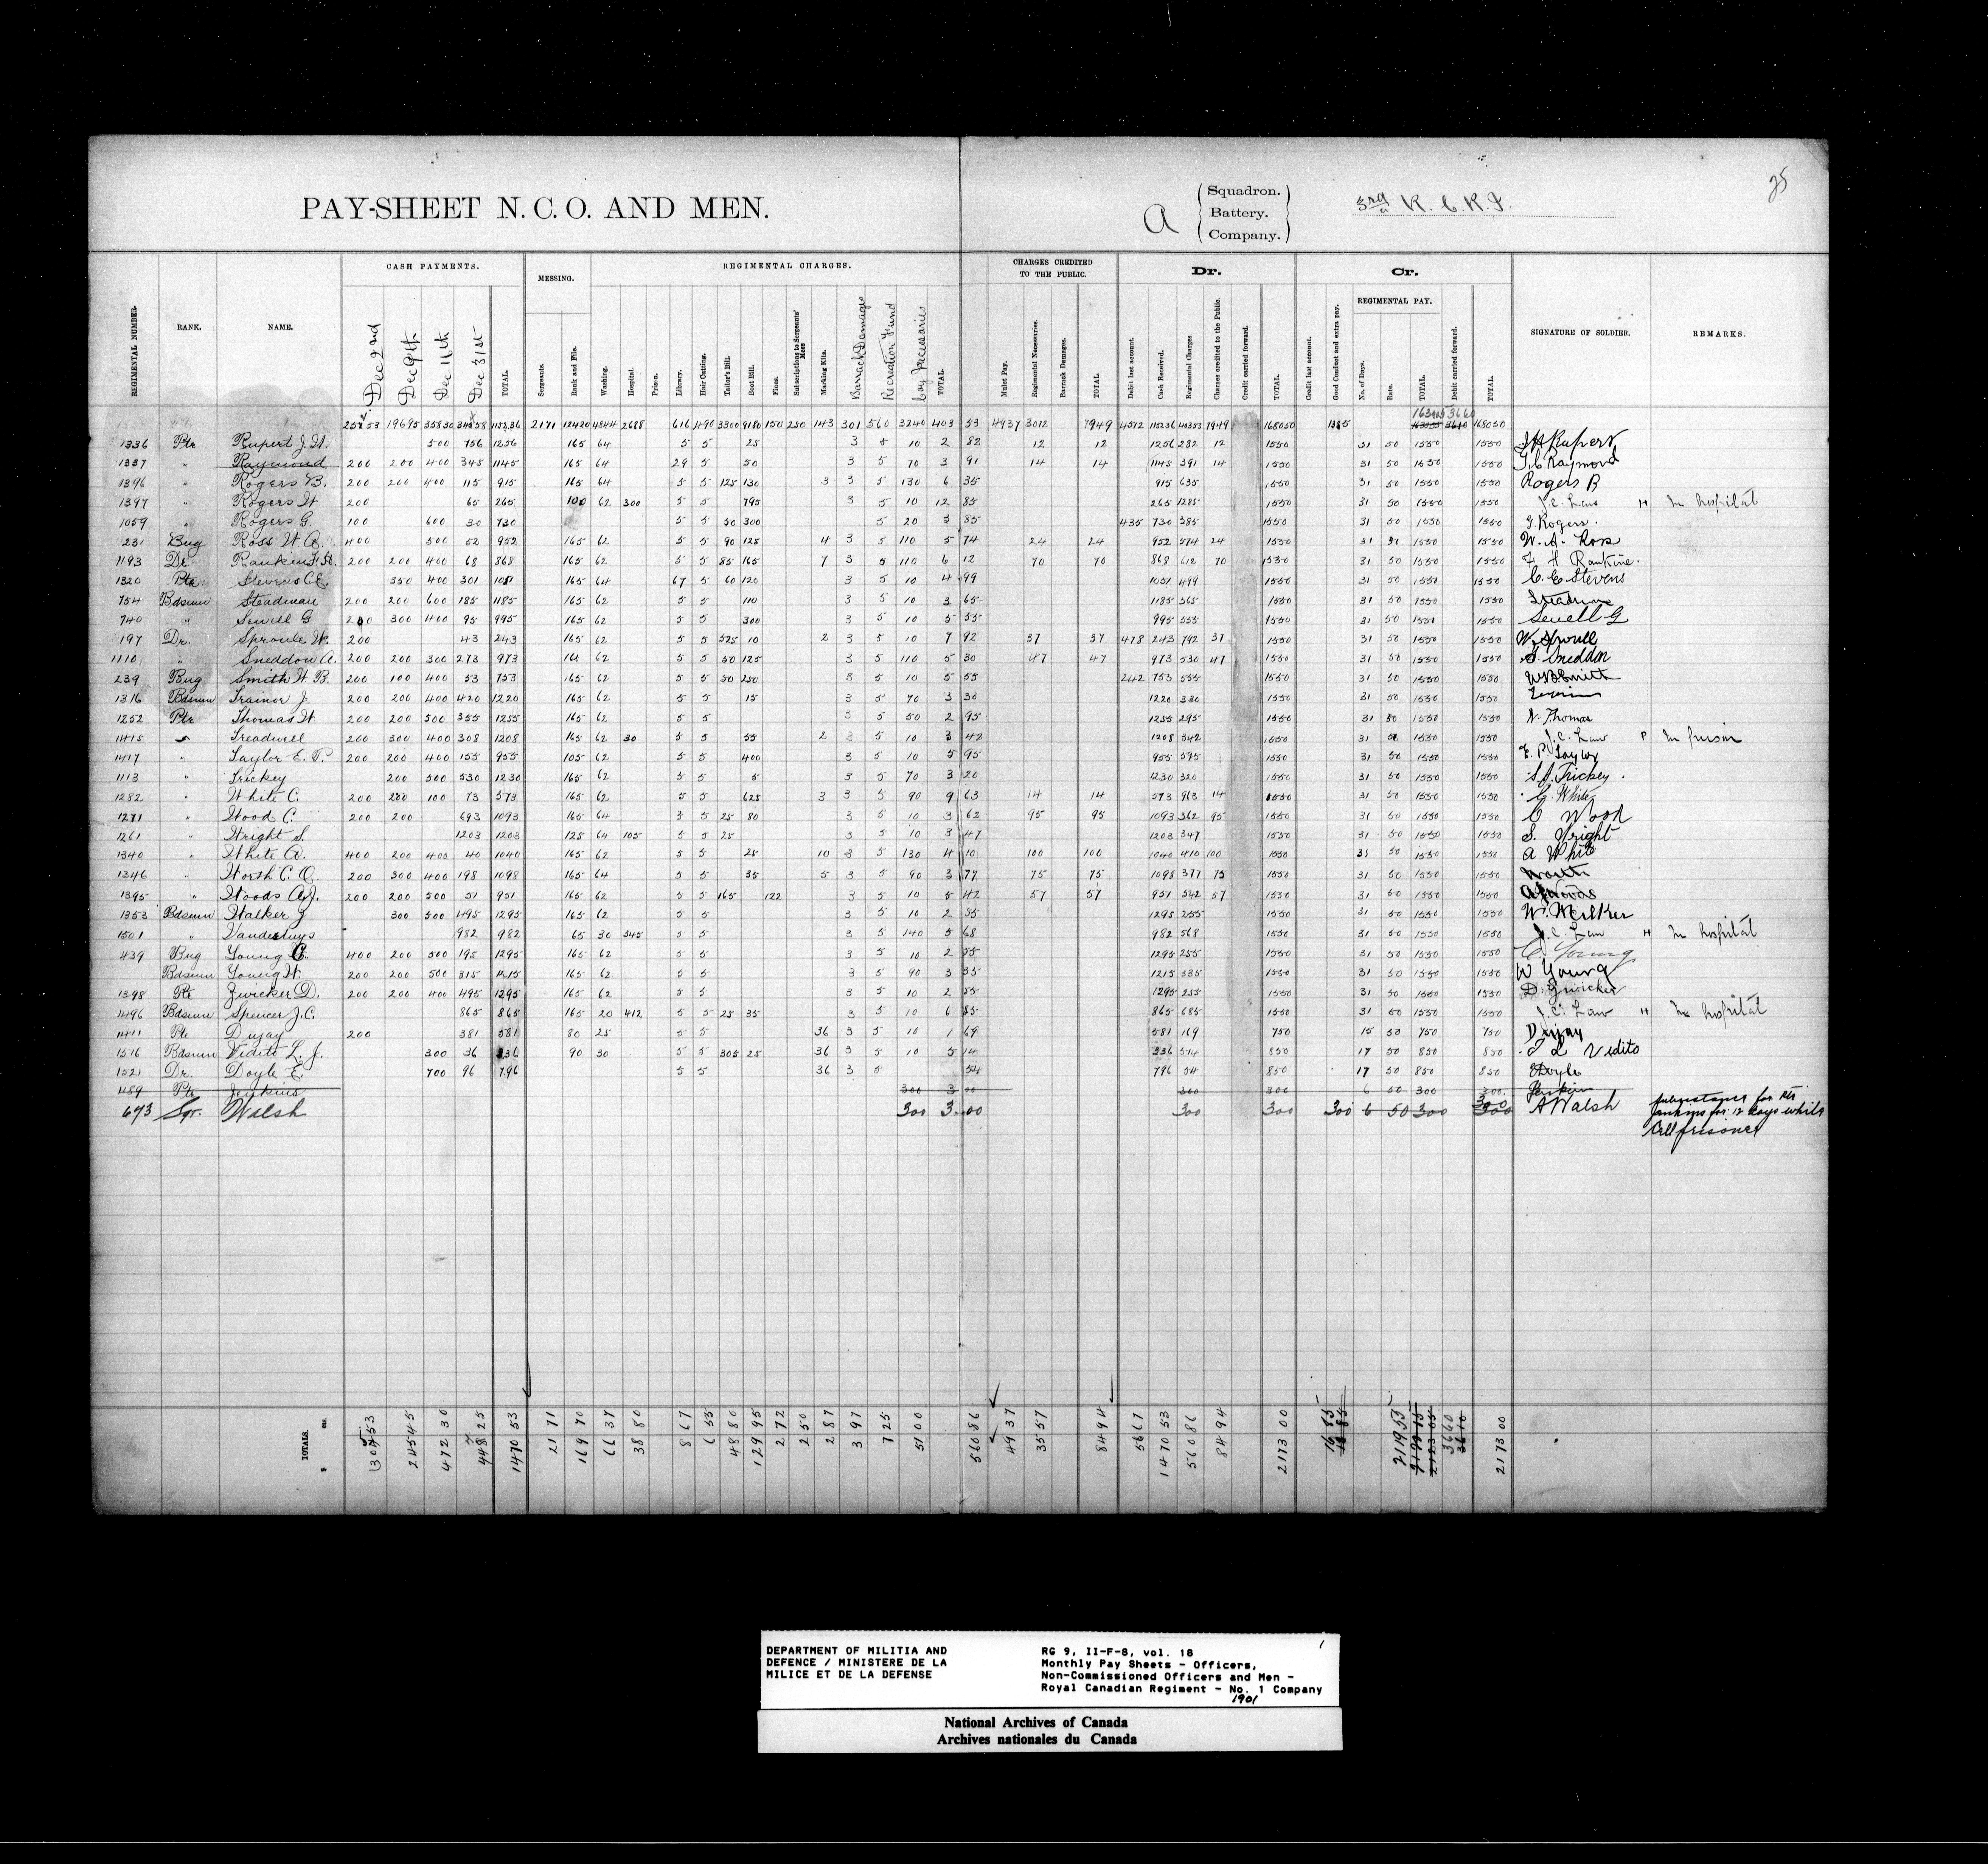 25
PAY-SHEET N. C. O. AND MEN.
A
Squadron.
Battery.
Company.
3rd R. C. R. I.
REGIMENTAL NUMBER. RANK. NAME. CASH PAYMENTS. MESSING. REGIMENTAL CHARGES. CHARGES CREDITED TO THE PUBLIC. Dr. Cr. SIGNATURE OF SOLDIER. REMARKS.
REGIMENTAL PAY.
Dec 2nd Dec 9th Dec 11th Dec 31st TOTAL. Sergeants. Rank and File. Washing. Hospital. Prison. Library. Hair Cutting. Tailor's Bill. Boot Bill. Fines. Subscriptions to Sergeants' Mess Marking Kits. Barrack Damages Recreation Fund Coy Necessaries TOTAL. Mulct Pay. Regimental Necessaries. Barrack Damages. TOTAL Debit last account. Cash Received. Regimental Charges Charges credited to the Public. Credit carried forward. TOTAL Credit last account. Good Conduct and extra pay. No. of Days. Rate. TOTAL Debit carried forward. TOTAL.
19695 35830 115236 2171 12420 4844 2688 616 490 3300 9180 150 250 143 301 560 3240 403 53 4937 3012 7949 4512 115236 40353 7949 168050 1385 3660 168050
1336 Pte Rupert J. H. 500 756 1256 165 64 5 5 25 3 5 10 2 82 12 12 1256 282 12 1550 31 50 1550 1550 J H Rupert
1337 " Raymond 200 200 400 345 1145 165 64 29 5 50 3 5 70 3 91 14 14 1145 391 14 1550 31 50 1550 1550 Raymond
1396 " Rogers B. 200 200 400 115 915 165 64 5 5 125 130 3 3 5 130 6 35 915 635 1550 31 50 1550 1550 Rogers B
1397 " Rogers W. 200 65 265 100 62 300 5 5 795 3 5 10 12 85 265 1285 1550 31 50 1550 1550 J. C. Law H In hospital
1059 " Rogers G. 100 600 30 730 5 5 50 300 5 20 3 85 435 730 385 1550 31 50 1550 1550 G Rogers.
231 Bug Ross W. A. 400 500 52 952 165 62 5 5 90 125 4 3 5 110 5 74 24 24 952 574 24 1550 31 50 1550 1550 W. A. Ross
1193 Dr. Rankine F. H. 200 200 400 68 868 165 62 5 5 85 165 7 3 5 110 6 12 70 70 868 612 70 1550 31 50 1550 1550 F H Rankine.
1320 Pte Stevens C E 350 400 301 1051 165 64 67 5 60 120 3 5 10 4 99 1051 499 1550 31 50 1550 1550 C. E Stevens
754 Bdsmn Steadman 200 200 600 185 1185 165 62 5 5 110 3 5 10 3 65 1185 365 1550 31 50 1550 1550 Steadman
740 " Sewell G 200 300 400 95 995 165 62 5 5 300 3 5 10 5 55 995 555 1550 31 50 1550 1550 Sewell G
197 Dr. Sproule W. 200 43 243 165 62 5 5 525 10 2 3 5 10 7 92 37 37 478 243 792 37 1550 31 50 1550 1550
1110 " Sneddon A. 200 200 300 273 973 62 5 5 50 125 3 5 110 5 30 47 47 973 530 47 1550 31 50 1550 1550 Sneddon
239 Bug Smith W B. 200 100 400 53 753 165 62 5 5 50 250 3 5 10 5 55 242 753 555 1550 31 50 1550 1550 W B Smith
1316 Bdsmn Trainor J. 200 200 400 420 1220 165 62 5 5 15 3 5 70 3 30 1220 330 1550 31 50 1550 1550
1252 Pte Thomas W 200 200 500 355 1255 165 62 5 5 3 5 50 2 95 1255 295 1550 31 50 1550 1550 W. Thomas
1415 " Treadwell 200 300 400 308 1208 165 62 30 5 5 55 2 3 5 10 3 42 1208 342 1550 31 50 1550 1550 J. C. Law P In prison
1417 " Taylor E. P. 200 200 400 155 955 105 62 5 5 400 3 5 10 5 95 955 595 1550 31 50 1550 1550 E. P Taylor
1113 " Trickey 200 500 530 1230 165 62 5 5 5 3 5 70 3 20 1230 320 1550 31 50 1550 1550 Trickey.
1282 " White C. 200 200 100 73 573 165 62 5 5 625 3 3 5 90 9 63 14 14 573 963 14 1550 31 50 1550 1550 C. White
1271 " Wood C. 200 200 693 1093 165 64 3 5 25 80 3 5 10 3 62 95 95 1093 362 95 1550 31 50 1550 1550 C Wood
1261 " Wright S. 1203 1203 125 64 105 5 5 25 3 5 10 3 47 1203 347 1550 31 50 1550 1550 S. Wright
1340 " White A. 400 200 400 40 1040 165 62 5 5 25 10 3 5 130 4 10 100 100 1040 410 100 1550 31 50 1550 1550 A White
1346 " Worth C. O. 200 300 400 198 1098 165 64 5 5 35 5 3 5 90 3 77 75 75 1098 377 75 1550 31 50 1550 1550 Worth
1395 " Woods A. J. 200 200 500 51 951 165 62 5 5 165 122 3 5 10 5 42 57 57 951 542 57 1550 31 50 1550 1550 A J Woods
1353 Bdsmn Walker J 300 500 495 1295 165 62 5 5 3 5 10 2 55 1295 255 1550 31 50 1550 1550 W. Walker
1501 " Vanderluys 982 982 65 30 345 5 5 3 5 140 5 68 982 568 1550 31 50 1550 1550 J. C. Law H In hospital
439 Bug Young C. 400 200 500 195 1295 165 62 5 5 3 5 10 2 55 1295 255 1550 31 50 1550 1550 C Young
Bdsmn Young W. 200 200 500 315 1215 165 62 5 5 3 5 90 3 35 1215 335 1550 31 50 1550 1550 W Young
1398 Pte Zwicker D. 200 200 400 495 1295 165 62 5 5 3 5 10 2 55 1295 255 1550 31 50 1550 1550 D. Zwicker
1496 Bdsmn Spencer J. C. 865 865 165 20 412 5 5 25 35 3 5 10 6 85 865 685 1550 31 50 1550 1550 J. C. Law H In hospital
1411 Pte Dujay 200 381 581 80 25 5 5 36 3 5 10 1 69 581 169 750 15 50 750 750 Dujay
1516 Bdsmn Vidito L. J. 300 36 336 90 30 5 5 305 25 36 3 5 10 5 14 336 514 850 17 50 850 850 Vidito
1521 Dr. Doyle E. 700 96 796 5 5 36 3 5 54 796 54 850 17 50 850 850 E Doyle
1489 Pte Jenkins 300 3 00 300 300 6 50 300 300 Jenkins
673 Sgr. Walsh 300 3 00 300 300 300 6 50 300 300 A Walsh subsistance for Pte
Jenkins for 12 days whilst
Cell prisoner
TOTALS. $ cts. 245 45 472 30 1470 53 21 71 169 70 66 37 38 80 8 67 6 55 48 80 129 95 2 72 2 50 2 87 3 97 7 25 51 00 560 86 49 37 35 57 84 94 56 67 1470 53 560 86 84 94 2173 00 16 85 2119 55 36 60 2173 00
DEPARTMENT OF MILITIA AND
DEFENCE / MINISTERE DE LA
MILICE ET DE LA DEFENSE
RG 9, II-F-8, vol. 18
Monthly Pay Sheets - Officers,
Non-Commissioned Officers and Men -
Royal Canadian Regiment - No. 1 Company
1901
National Archives of Canada
Archives nationales du Canada